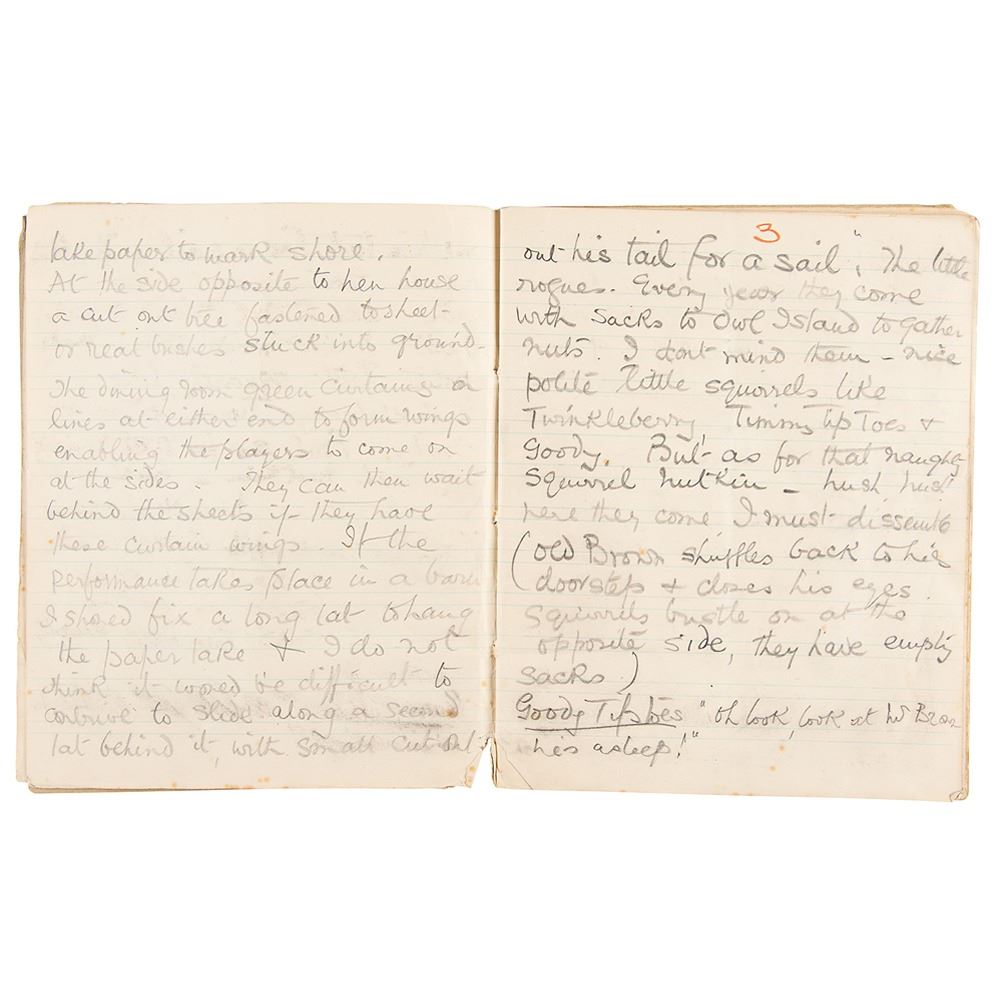 lake paper to mark shore.
At the side opposite to hen house
a cut out tree fastened to sheet -
or real bushes stuck into ground -
The dining room green curtains on
lines at either end to form wings
enabling the players to come on
at the sides. They can then wait
behind the sheets if they have
these curtain wings. If the
performance takes place in a barn
I should fix a long lat to hang
the paper lake & I do not
think it would be difficult to
contrive to slide along a second
lat behind it, with small cut out
3
out his tail for a sail". The little
rogues. Every year they come
with sacks to Owl Island to gather
nuts. I dont mind them - nice
polite little squirrels like
Twinkleberry Timmy Tip Toes &
Goody. But as for that naughty
Squirrel Nutkin - hush, hush
here they come I must
(Old Brown shuffles back to his
doorstep & closes his eyes.
Squirrels bustle on at the
opposite side, they have empty
sacks.)
Goody Tiptoes "Oh look, look at Brown
his asleep!"